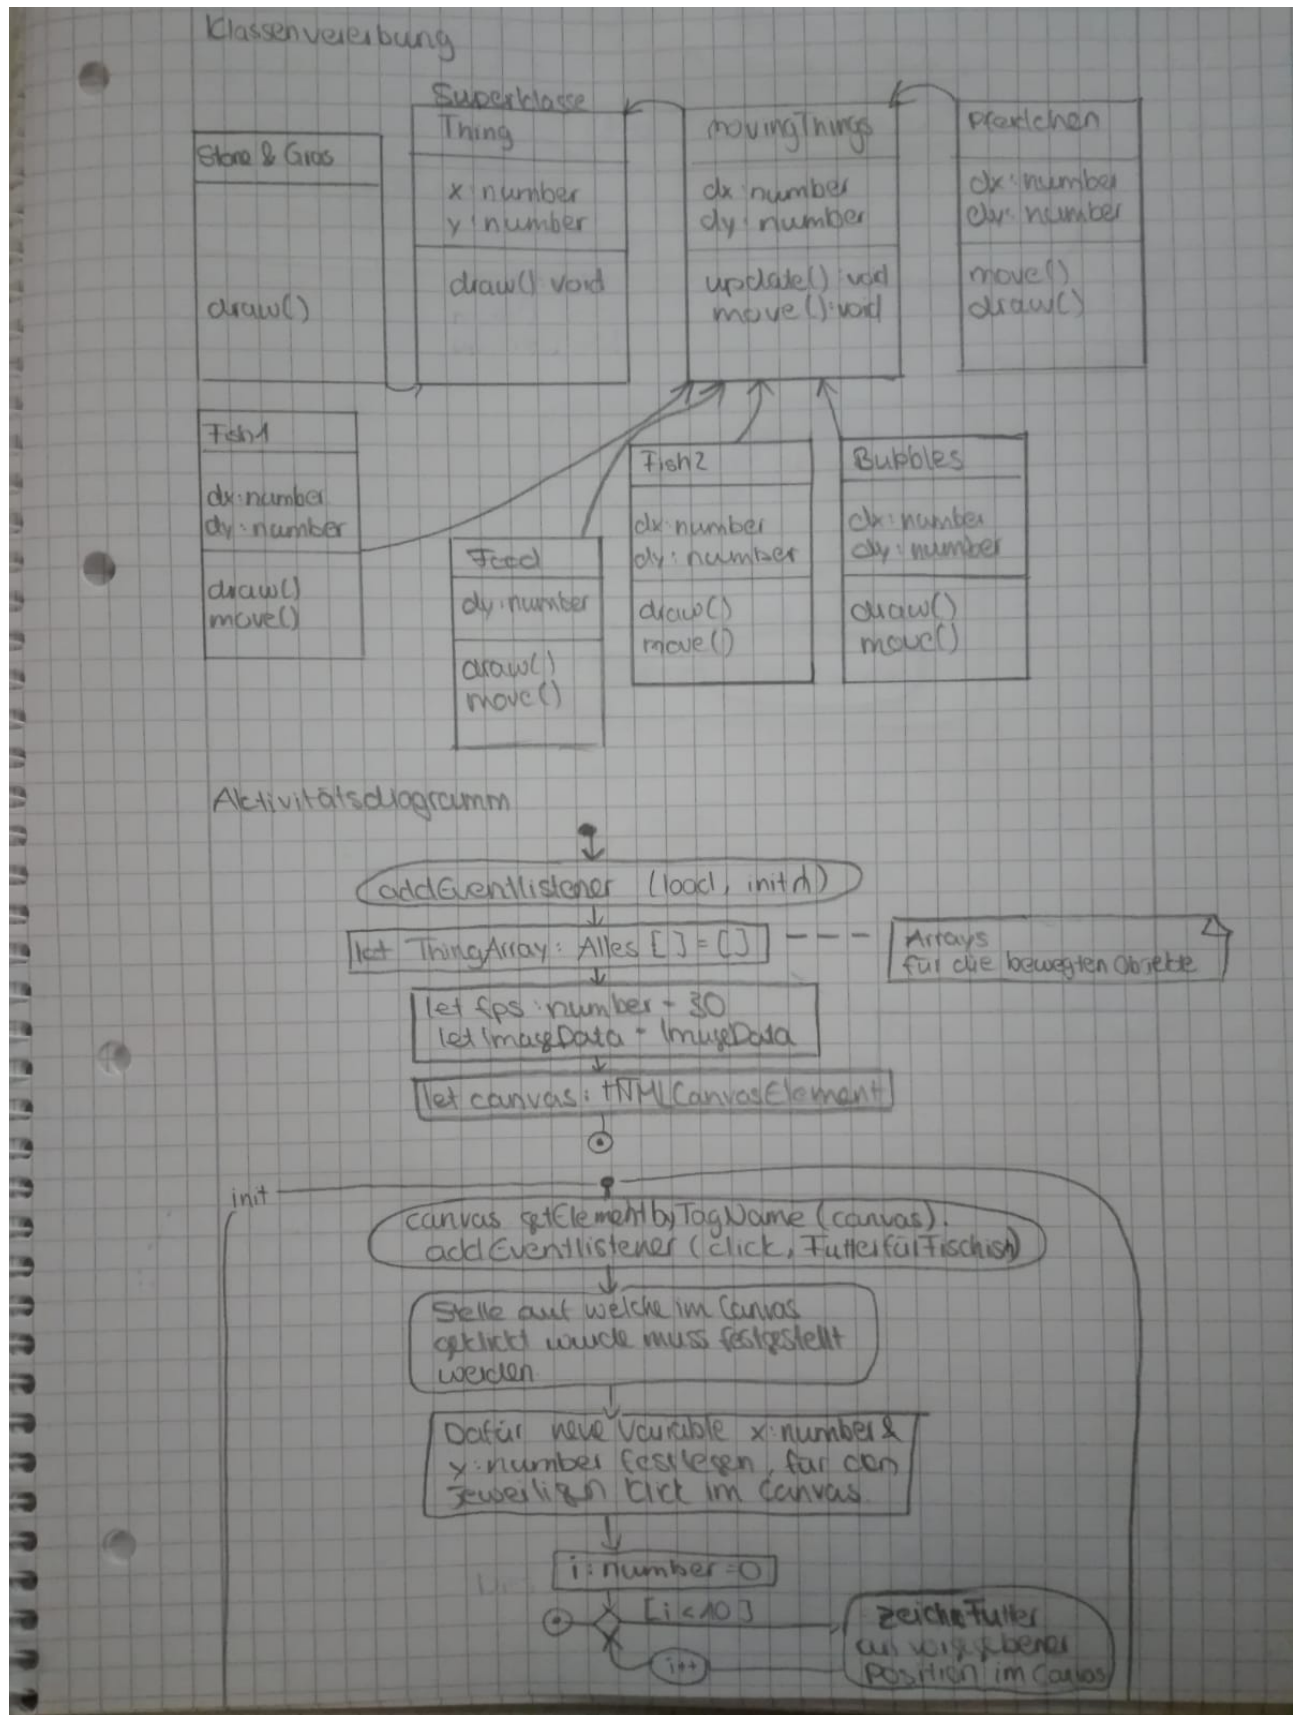 Klassenvererbung
Superklasse
Thing
x:number
y:number
draw() void
movingThings
dx:number
dy:number
update():void
move():void
Pferdchen
dx:number
dy:number
move()
draw()
Stone & Gras
draw()
Fish1
dx:number
dy:number
draw()
move()
Food
dy:number
draw()
move()
Fish2
dx:number
dy:number
draw()
move()
Bubbles
dx:number
dy:number
draw()
move()
Aktivitätsdiagramm
addEventlistener (load, init)
let ThingArray: Alles [] = []
Arrays
für die bewegten Objekte
let fps:number = 30
let ImageData = ImageData
let canvas: HTMLCanvasElement
init
canvas getElementbyTagName (canvas).
addEventlistener (click, FutterfürFischish)
Stelle auf welche im Canvas
geklickt wurde muss festgestellt
werden.
Dafür neue Variable x:number &
y:number festlegen, für den
jeweiligen Click im Canvas
i:number=0
[i<10]
zeichne Futter
auf vorgegebener
Position im Canvas
i++